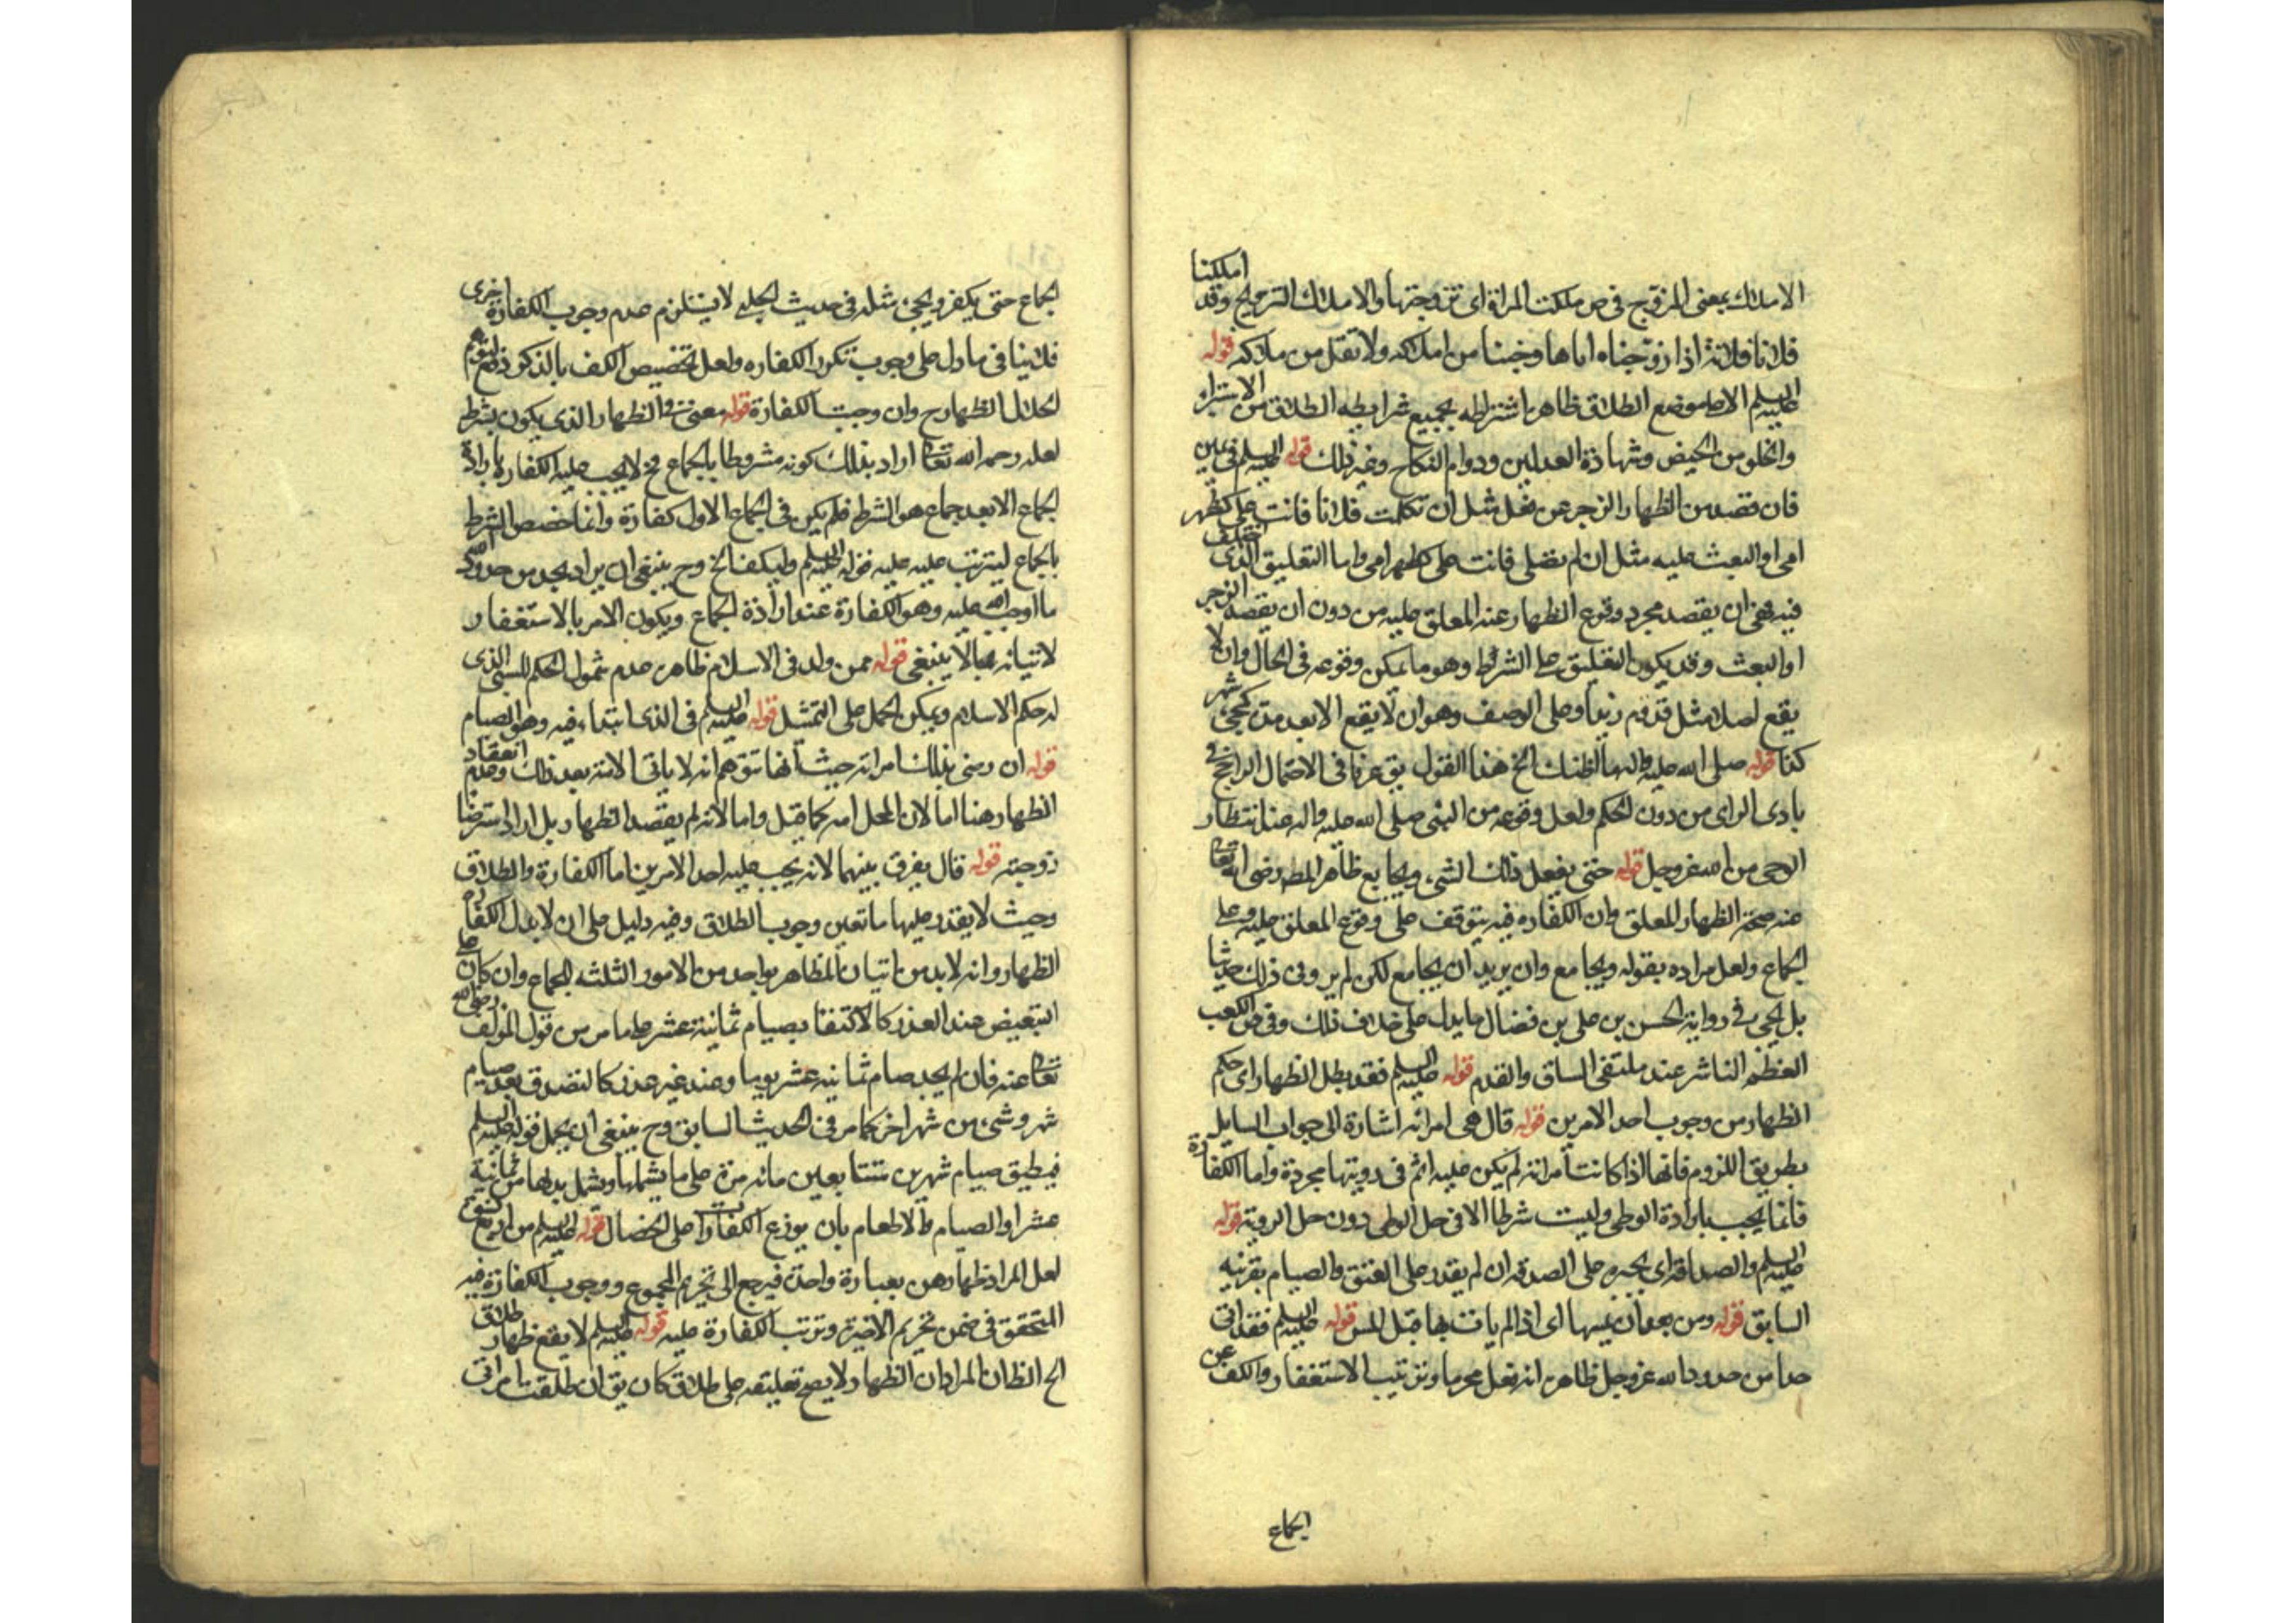 الاملاك بمعنى المزوج في ص ملكت المراة اى تزوجتها والاملاك التزويج وقد املكنا
فلانا فلانة اذا زوجناه اياها وجئنا من املاكه ولا تقل من ملاكه قوله
عليه السلم الا على موضع الطلاق ظاهره اشتراطه بجميع شرايطه الطلاق من الاستبراء
والخلو من الحيض وشهادة العدلين ودوام النكاح وغير ذلك قوله عليه السلم في يمين
فان قصد من الظهار الزجر عن فعل مثل ان تكلمت فلانا فانت على كظهر
امى او البعث عليه مثل ان لم تصلى فانت على كظهر امى واما التعليق الذى اختلف
فيه فهو ان يقصد مجرد وقوع الظهار عند المعلق عليه من دون ان يقصد الزجر
او البعث وقد يكون التعليق على الشرط وهو ما يمكن وقوعه في الحال وان لا
يقع اصلا مثل قدوم زيد وعلى الوصف وهو ان لا يقع الا بعد مدة كمجئ شهر
كذا قوله صلى الله عليه واله ما اظنك الخ هذا القول يق عرفا في الاحتمال الراجح في
بادى الراى من دون الحكم ولعل وقوعه من النبى صلى الله عليه واله عند انتظار
الوحى من الله عز وجل قوله حتى يفعل ذلك الشىء ويجامع ظاهر المصـ رضى الله تعالى
عنه صحة الظهار المعلق وان الكفاره فيه يتوقف على وقوع المعلق عليه وعلى
الجماع ولعل مراده بقوله ويجامع وان يريد ان يجامع لكن لم ير وفى ذلك حديثا
بل يجى في رواية الحسن بن على بن فضال ما يدل على خلاف ذلك وفى ص الكعب
العظم الناشز عند ملتقى الساق والقدم قوله عليه السلم فقد بطل الظهار اى حكم
الظهار من وجوب احد الامرين قوله قال هى امراته اشارة الى جواب السايل
بطريق اللزوم فانها اذا كانت امراته لم يكن عليه اثم في رويتها مجردة واما الكفارة
فانما يجب بارادة الوطى وليست شرطا الا في حل الوطى دون حل الروية قوله
عليه السلم والصداقة اى يجبره على الصدقة ان لم يقدر على العتق والصيام بقرينة
السابق قوله ومن بعد ان يمسها اى اذا لم يات بها قبل المس قوله عليه السلم فقد اتى
حدا من حدود الله عز وجل ظاهره انه فعل محرما وترتيب الاستغفار والكف عن
الجماع
الجماع حتى يكفر ويجئ مثله في حديث الحلبى لا يستلزم عدم وجوب الكفارة اخرى
فلا ينافى ما دل على وجوب تكرر الكفاره ولعل تخصيص الكف بالذكر لدفع توهم
انحلال الظهار ح وان وجبت الكفارة قوله معنى والظهار الذى يكون بشرط
لعله رحمه الله تعالى اراد بذلك كونه مشروطا بالجماع فح لا يجب عليه الكفاره بارادة
الجماع الا بعد جماع هو الشرط فلم يكن في الجماع الاول كفارة وانما خصص الشرط
بالجماع ليترتب عليه قوله عليه السلم وليكف الخ وح ينبغى ان يراد بحد من حدود الله
ما اوجب الله عليه وهو الكفارة عند ارادة الجماع ويكون الامر بالاستغفار
لاتيانه بما لا ينبغى قوله ممن ولد في الاسلام ظاهره عدم شمول الحكم للسبى الذى
له حكم الاسلام ويمكن الحمل على التمثيل قوله عليه السلم في الذى ابتداء فيه وهو الصيام
قوله ان رضى بذلك امراته حيث انها تتوهم انه لا ياتى الامة بعد ذلك وعدم انعقاد
الظهار هنا اما لان المحل امه كما قيل واما لانه لم يقصد الظهار بل اراد استرضا
زوجته قوله قال يفرق بينهما لانه يجب عليه احد الامرين اما الكفارة والطلاق
وحيث لا يقدر عليها ما تعين وجوب الطلاق وفيه دليل على ان لا بدل لكفارة
الظهار وانه لا بد من اتيان المظاهر بواحد من الامور الثلثه للجماع وان كان على
التبعيض عند العذر كالاكتفا بصيام ثمانية عشر على ما مر من قول المولف رضى الله
تعالى عنه فان لم يجد صام ثمانيه عشر يوما وعند غير عذر كالتصدق بعد صيام
شهر وشىء من شهر اخر كما مر في الحديث السابق وح ينبغى ان يحمل قوله عليه السلم
فيطيق صيام شهرين متتابعين ما نه مرة على ما يشملها ويشمل بدلها من ثمانية
عشر او الصيام والاطعام بان يوزع الكفارات على الخصال قوله عليه السلم من اربع نسوة
لعل المراد ظهارهن بعبارة واحدة فيرجع الى تحريم المجموع ووجوب الكفارة فيه
المتحقق في ضمن تحريم الاخيرة وترتب الكفارة عليه قوله عليه السلم لا يقع ظهار طلاق
الح الظ ان المراد ان الظهار لا يصح تعليقه على طلاق كان يق ان طلقت امراتى